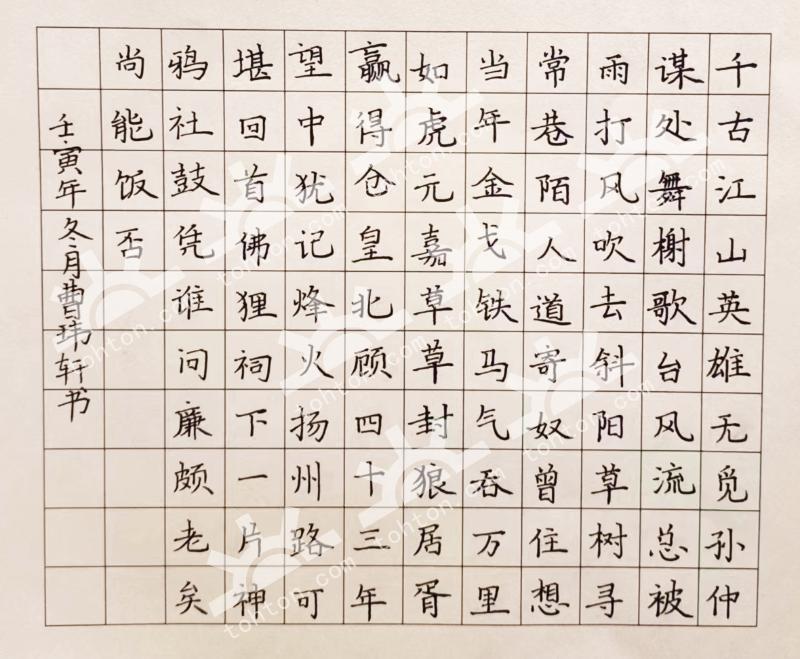 千古江山英雄无觅孙仲
谋处舞榭歌台风流总被
雨打风吹去斜阳草树寻
常巷陌人道寄奴曾住想
当年金戈铁马气吞万里
如虎元嘉草草封狼居胥
赢得仓皇北顾四十三年
望中犹记烽火扬州路可
堪回首佛狸祠下一片神
鸦社鼓凭谁问廉颇老矣
尚能饭否
壬寅年冬月曹玮轩书
tohton.com
tohton.com
tohton.com
tohton.com
tohton.com
tohton.com